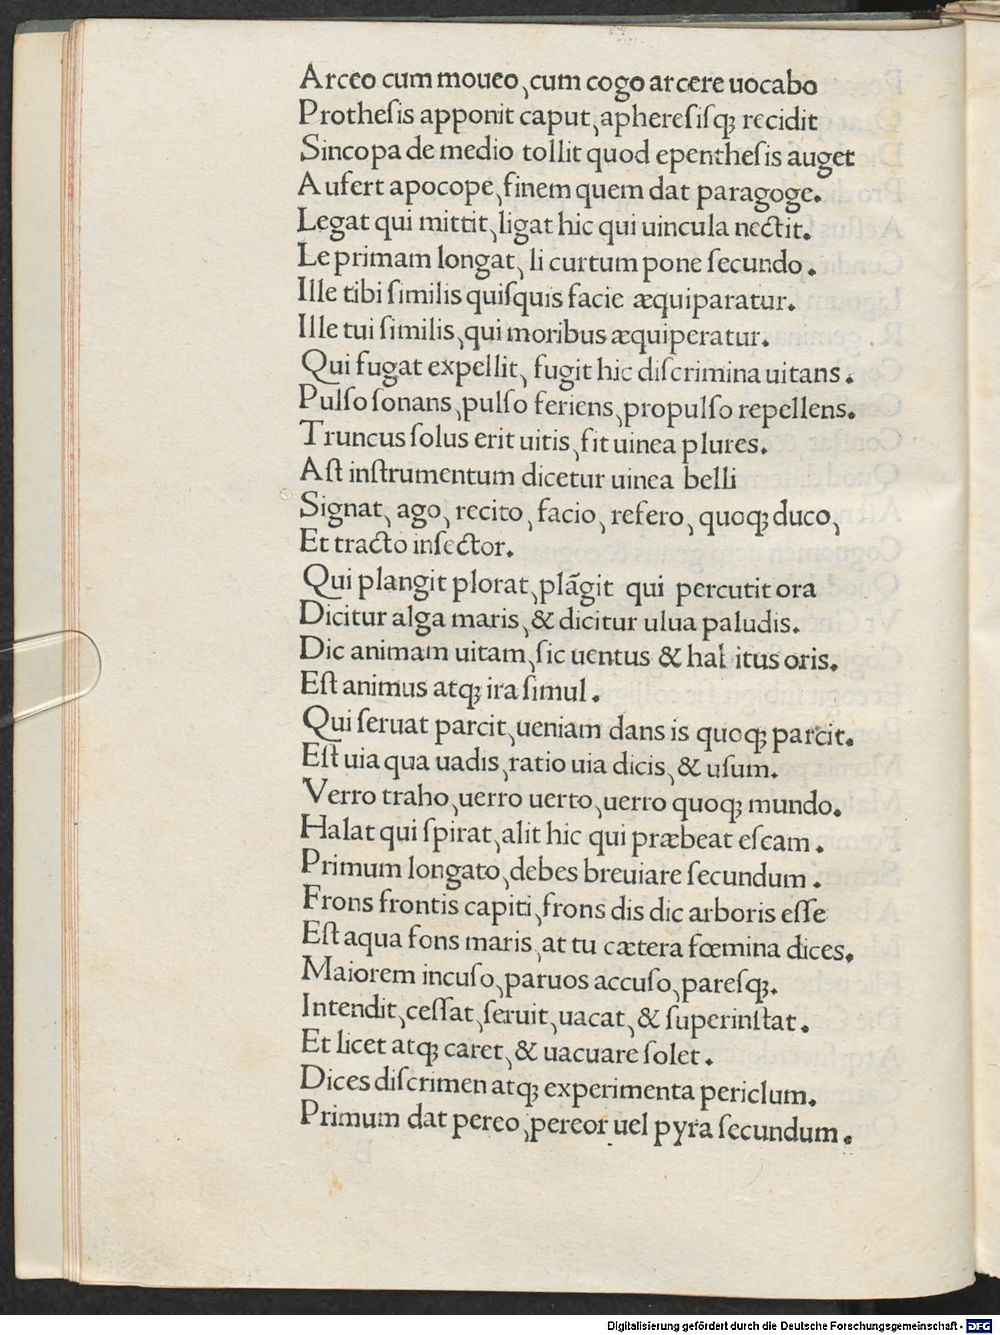 Arceo cum moueo, cum cogo arcere uocabo
Protheſis apponit caput, aphereſiſqꝫ recidit
Sincopa de medio tollit quod epentheſis auget
Aufert apocope, finem quem dat paragoge.
Legat qui mittit, ligat hic qui uincula nectit.
Le primam longat, li curtum pone ſecundo.
Ille tibi ſimilis quiſquis facie æquiparatur.
Ille tui ſimilis, qui moribus æquiperatur.
Qui fugat expellit, fugit hic diſcrimina uitans.
Pulſo ſonans, pulſo feriens, propulſo repellens.
Truncus ſolus erit uitis, fit uinea plures.
Aſt inſtrumentum dicetur uinea belli
Signat, ago, recito, facio, refero, quoqꝫ duco,
Et tracto inſector.
Qui plangit plorat, plãgit qui percutit ora
Dicitur alga maris, & dicitur ulua paludis.
Dic animam uitam, ſic uentus & halitus oris.
Eſt animus atqꝫ ira ſimul.
Qui ſeruat parcit, ueniam dans is quoqꝫ parcit.
Eſt uia qua uadis, ratio uia dicis, & uſum.
Verro traho, uerro uerto, uerro quoqꝫ mundo.
Halat qui ſpirat, alit hic qui præbeat eſcam.
Primum longato, debes breuiare ſecundum.
Frons frontis capiti, frons dis dic arboris eſſe
Eſt aqua fons maris, at tu cætera fœmina dices.
Maiorem incuſo, paruos accuſo, pareſqꝫ.
Intendit, ceſſat, ſeruit, uacat, & ſuperinſtat.
Et licet atqꝫ caret, & uacuare ſolet.
Dices diſcrimen atqꝫ experimenta periclum.
Primum dat pereo, pereor uel pyra ſecundum.
Digitalisierung gefördert durch die Deutsche Forschungsgemeinschaft - DFG